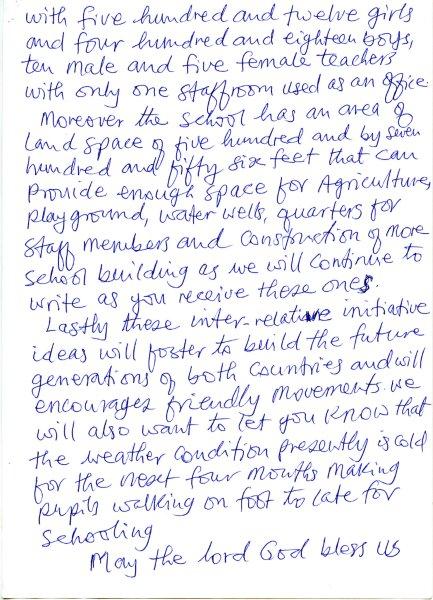 with five hundred and twelve girls
and four hundred and eighteen boys,
ten male and five female teachers
with only one staffroom used as an office.
Moreover the school has an area of
land space of five hundred and by seven
hundred and fifty six feet that can
provide enough space for Agriculture,
playground, water wells, quarters for
staff members and construction of more
school building as we will continue to
write as you receive these ones.
Lastly these inter-relative initiative
ideas will foster to build the future
generations of both countries and will
encourages friendly movements. we
will also want to let you know that
the weather condition presently is cold
for the next four months making
pupils walking on foot to late for
schooling
May the lord God bless us